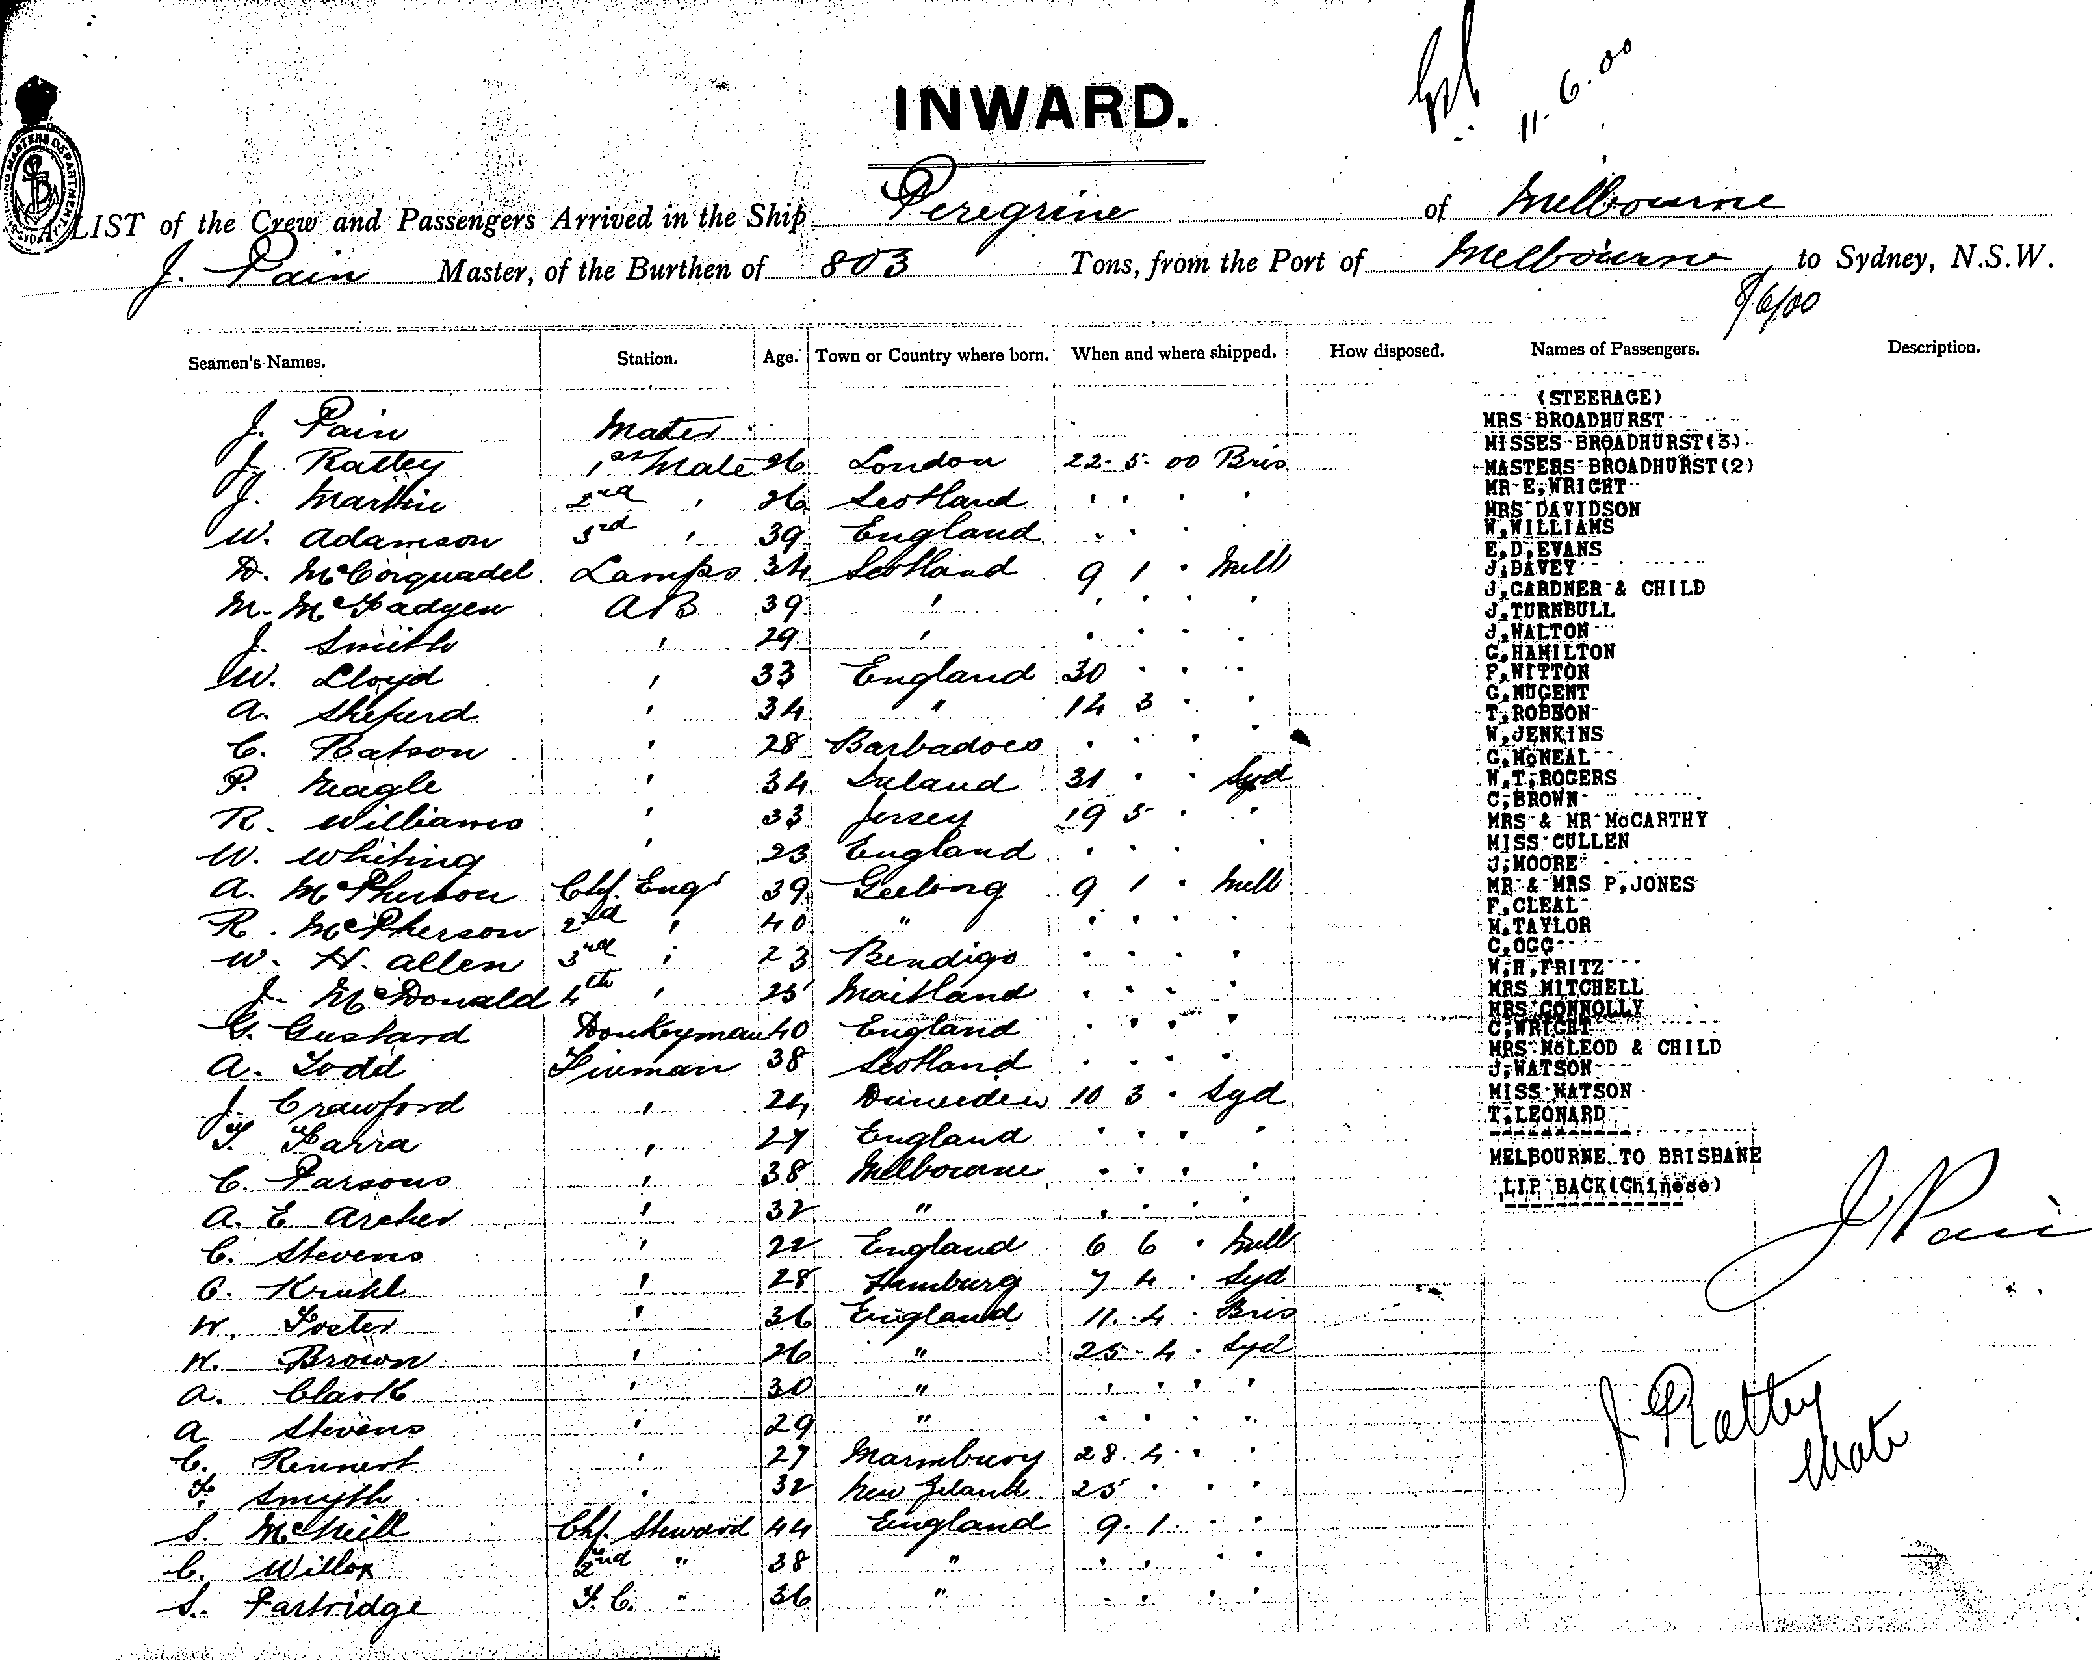 11.6.00
INWARD.
LIST of the Crew and Passengers Arrived in the Ship Peregrine of Melbourne
J. Pain Master, of the Burthen of 803 Tons, from the Port of Melbourne, to Sydney, N.S.W.
8/6/00
Seamen's Names. Station. Age. Town or Country where born. When and where shipped. How disposed. Names of Passengers. Description.
J. Pain Mater
J. Rattey 1st Mate 26 London 22. 5. 00 Bris
J. Martin 2nd " 26 Scotland " " " "
W. Adamson 3rd " 39 England " " " "
D. McCorquadel Lamps 34 Scotland 9 1 " Melb
M. McFadyen AB 39 " " " " "
J. Smith " 29 " " " " "
W. Lloyd " 33 England 30 " " "
A. Sheperd " 34 " 14 3 " "
C. Batson " 28 Barbadoes " " " "
P. Neagle " 34 Ireland 31 " " Syd
R. Williams " 33 Jersey 19 5 " "
W. Whiting " 23 England " " " "
A. McPherson Chf. Engr 39 Geelong 9 1 " Melb
R. McPherson 2nd " 40 " " " " "
W. H. Allen 3rd " 23 Bendigo " " " "
J. McDonald 4th " 25 Maitland " " " "
G. Gustard Donkeyman 40 England " " " "
A. Todd Fireman 38 Scotland " " " "
J. Crawford " 24 Dunedin 10 3 " Syd
T. Farra " 27 England " " " "
C. Parsons " 38 Melbourne " " " "
A. E Archer " 32 " " " " "
C. Stevens " 22 England 6 6 " Melb
C. Kruhl " 28 Hamburg 7 4 " Syd
W. Foster " 36 England 11. 4 " Bris
W. Brown " 26 " 25. 4 " Syd
A. Clark " 30 " " " " "
A Stevens " 29 " " " " "
C. Rennert " 27 28. 4 " "
F. Smyth " 32 New Zeland 25 " " "
S. McNeill Chf. Steward 44 England 9. 1. " "
C. Willox 2nd " 38 " " " " "
S. Partridge F.C. " 36 " " " " "
(STEERAGE)
MRS BROADHURST
MISSES BROADHURST(3)
MASTERS BROADHURST(2)
MR E,WRIGHT
MRS DAVIDSON
W,WILLIAMS
E,D,EVANS
J,DAVEY
J,GARDNER & CHILD
J,TURNBULL
J,WALTON
C,HAMILTON
P,WITTON
G,NUGENT
T,ROBSON
W,JENKINS
G,McNEAL
W,T,ROGERS
C,BROWN
MRS & MR McCARTHY
MISS CULLEN
J,MOORE
MR & MRS P,JONES
F,CLEAL
M,TAYLOR
C,OGG
W,H,FRITZ
MRS MITCHELL
MRS CONNOLLY
C,WRIGHT
MRS McLEOD & CHILD
J,WATSON
MISS WATSON
T,LEONARD
MELBOURNE TO BRISBANE
LIP BACK(Chinese)
J Pain
J Rattey
Mate